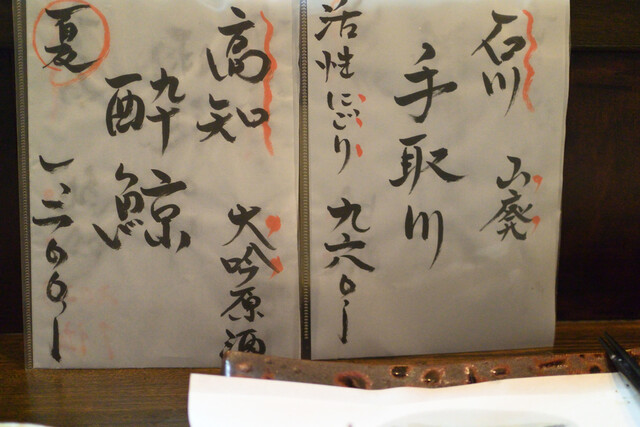 石川 山廃
手取川
活性にごり 九六〇ー
高知 大吟原酒
酔鯨
夏 一、二〇〇ー